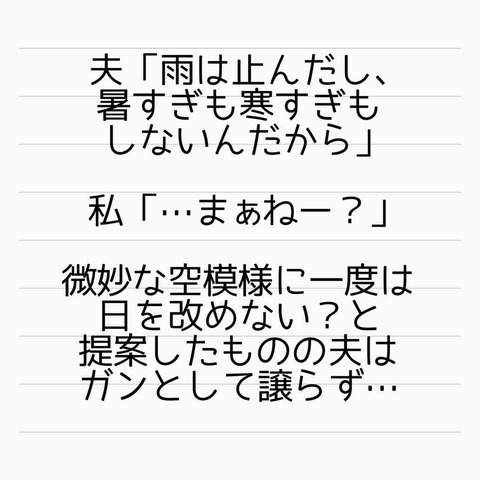 夫「雨は止んだし、
暑すぎも寒すぎも
しないんだから」
私「…まぁねー？」
微妙な空模様に一度は
日を改めない？と
提案したものの夫は
ガンとして譲らず…